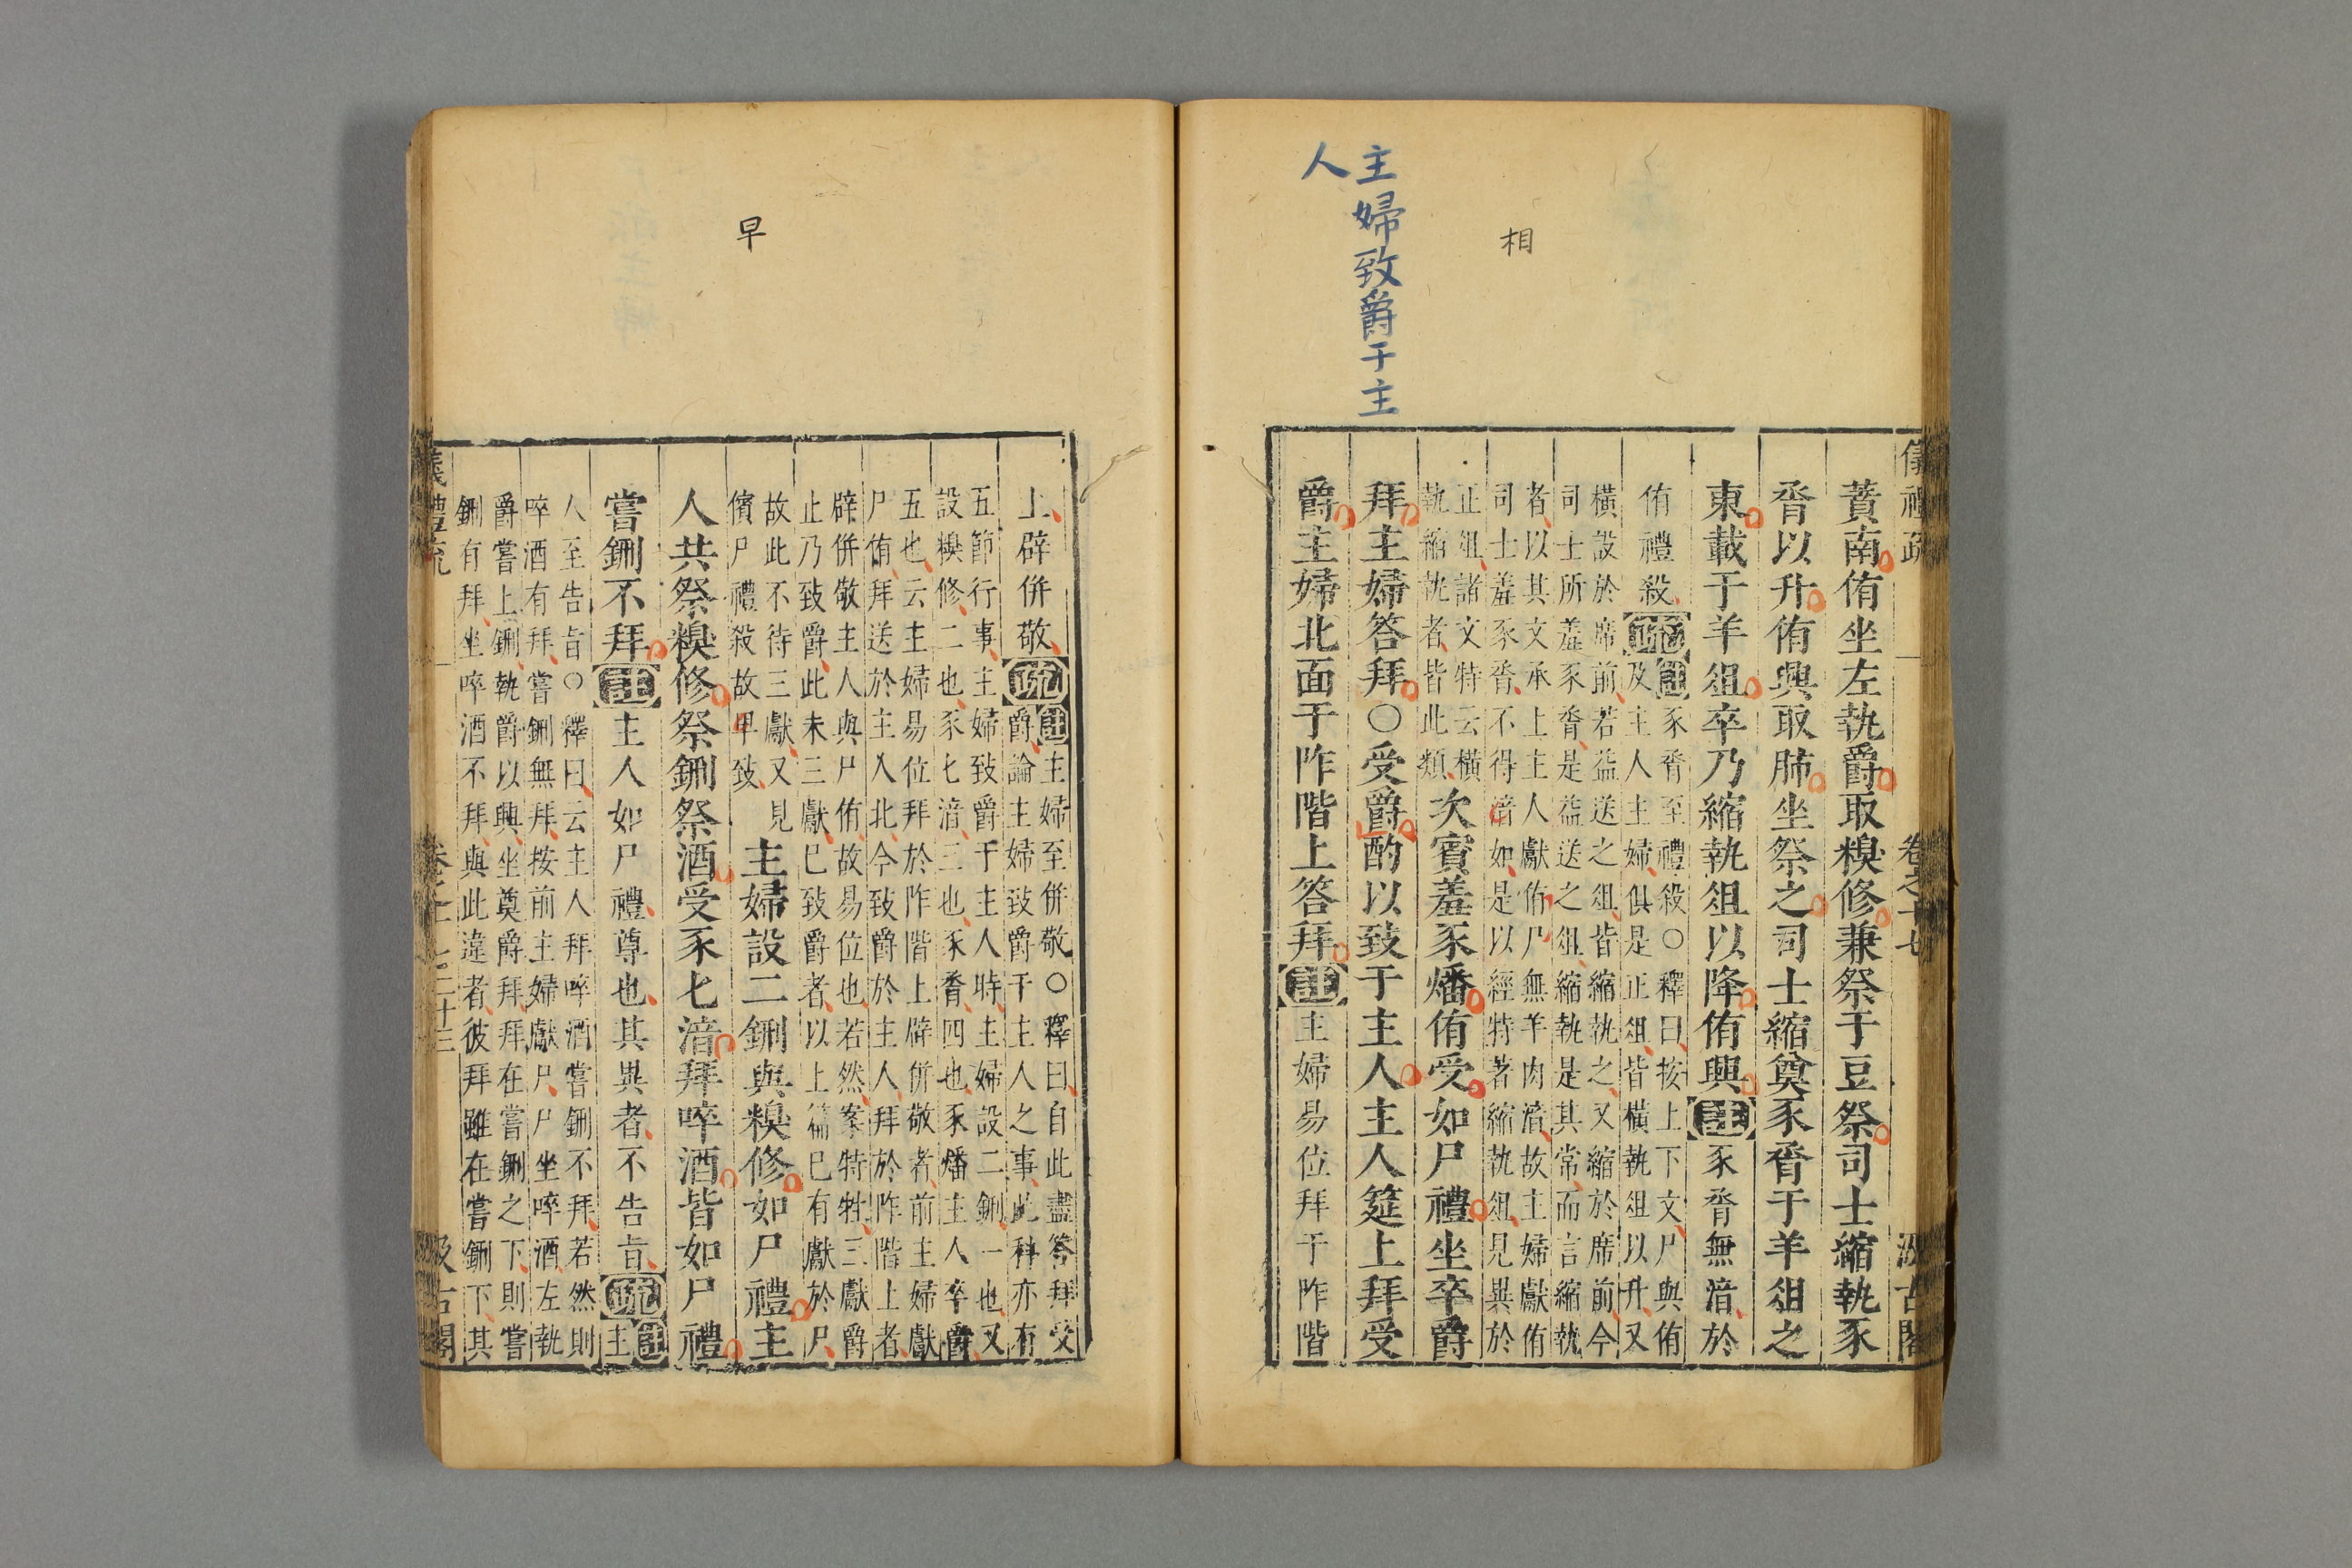 相
主婦致爵于主
人
儀禮疏 卷之十七 汲古閣
蕡南侑坐左執爵取糗修兼祭于豆祭司士縮執豕
脀以升侑興取肺坐祭之司士縮奠豕脀于羊俎之
東載于羊俎卒乃縮執俎以降侑興註豕脀無湆於
侑禮殺疏註豕脀至禮殺○釋曰按上下文尸與侑
及主人主婦俱是正俎皆橫執俎以升又
橫設於席前若益送之俎皆縮執之又縮於席前今
司士所羞豕脀是益送之俎縮執是其常而言縮執
者以其文承上主人獻侑乃無羊肉湆故主婦獻侑
司士羞豕脀不得湆如是以經特著縮執俎見異於
正俎諸文特云橫
執縮執者皆此類
次賓羞豕燔侑受如尸禮坐卒爵
拜主婦答拜○受爵酌以致于主人主人筵上拜受
爵主婦北面于阼階上答拜註主婦易位拜于阼階
早
上辟併敬疏註主婦至併敬○釋曰自此盡答拜受
爵論主婦致爵于主人之事此科亦有
五節行事主婦致爵于主人時主婦設二鉶一也又
設糗修二也豕匕湆三也豕脀四也豕燔主人卒爵
五也云主婦易位拜於阼階上辟併敬者前主婦獻
尸侑拜送於主人北今致爵於主人拜於阼階上者
辟併敬主人與尸侑故易位也若然案特牲三獻爵
止乃致爵此未三獻已致爵者以上篇已有獻於尸
故此不待三獻又見
儐尸禮殺故早致
主婦設二鉶與糗修如尸禮主
人共祭糗修祭鉶祭酒受豕匕湆拜啐酒皆如尸禮
嘗鉶不拜註主人如尸禮尊也其異者不告旨疏註主
人至告旨○釋曰云主人拜啐酒嘗鉶不拜若然則
啐酒有拜嘗鉶無拜按前主婦獻尸尸坐啐酒左執
爵嘗上鉶執爵以興坐奠爵拜拜在嘗鉶之下則嘗
鉶有拜坐啐酒不拜與此違者彼拜雖在嘗鉶下其
儀禮疏 卷之十七 二十三 汲古閣